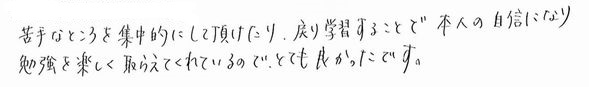 苦手なところを集中的にして頂けたり、戻り学習することで本人の自信になり
勉強を楽しく取らえてくれているので、とても良かったです。